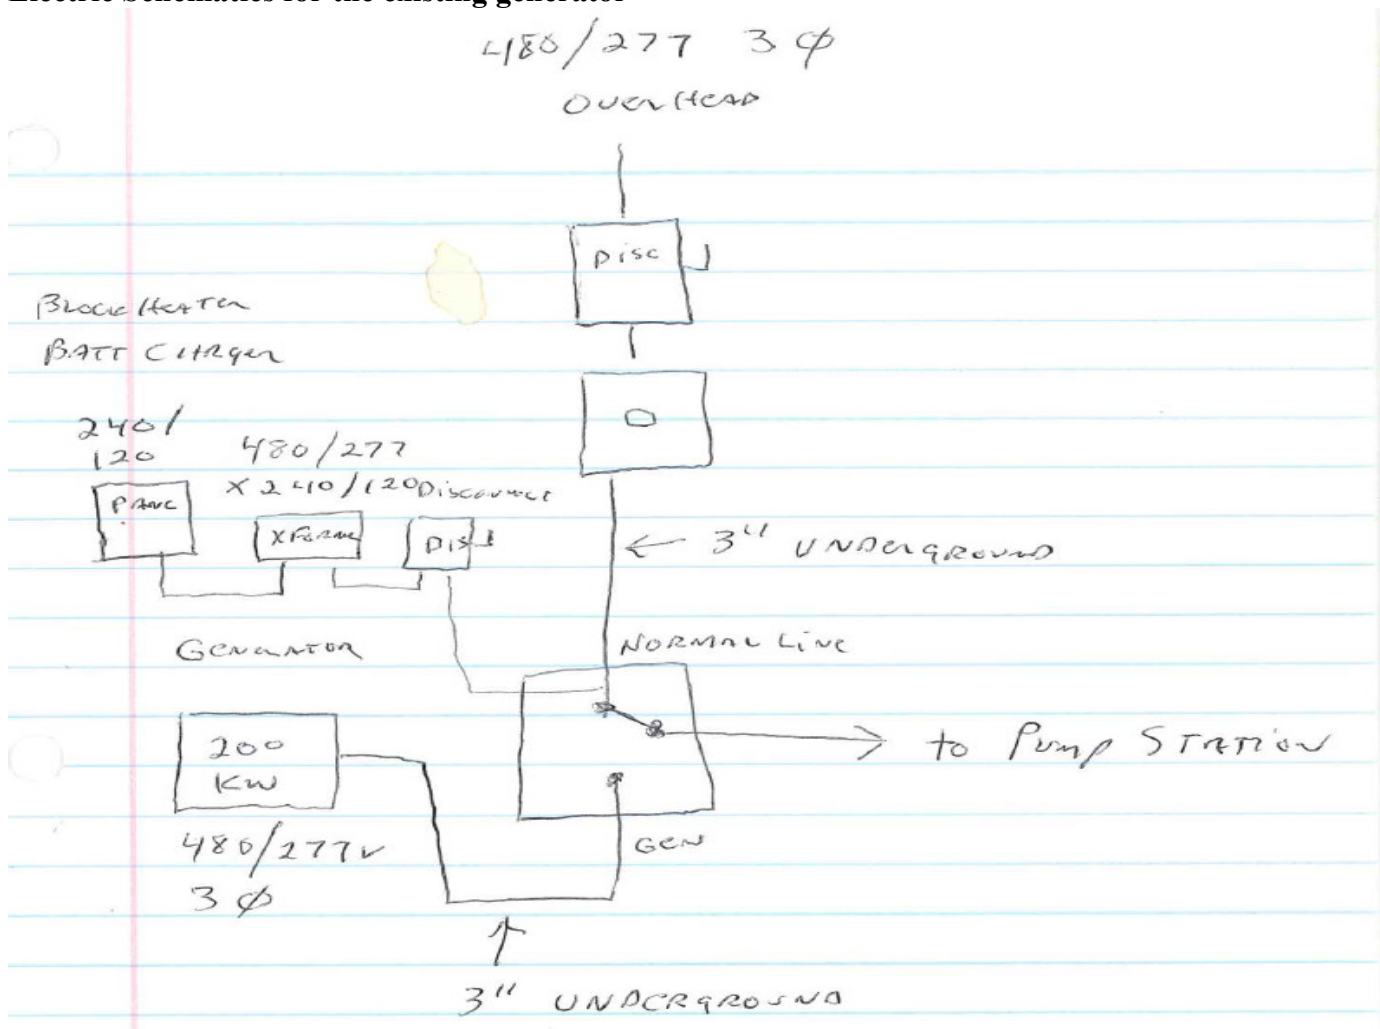 Electric Schematics for the existing generator
480/277 3 Ø
OVERHEAD
DISC
BLOCK HEATER
BATT CHRGER
240/
120
480/277
X 240/120 DISCONNECT
PANL
XFORM
DIS
← 3" UNDERGROUND
GENERATOR
NORMAL LINE
200
KW
to PUMP STATION
480/277V
GEN
3 Ø
3" UNDERGROUND